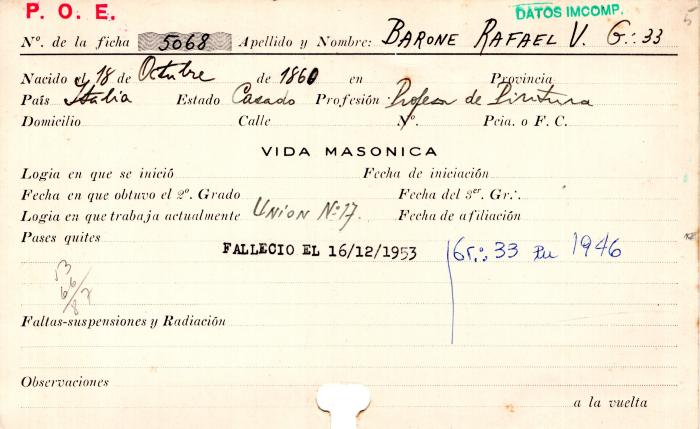 P. O. E. DATOS IMCOMP. 5
Nº. de la ficha 5068 Apellido y Nombre: BARONE RAFAEL V. G∴ 33
Nacido el 18 de Octubre de 1860 en Provincia
País Italia Estado Casado Profesión Profesor de Pintura
Domicilio Calle Nº. Pcia. o F. C.
VIDA MASONICA
Logia en que se inició Fecha de iniciación
Fecha en que obtuvo el 2º. Grado Fecha del 3er. Gr∴
Logia en que trabaja actualmente UNION Nº 17. Fecha de afiliación
Pases quites
FALLECIO EL 16/12/1953 Gr∴ 33 en 1946
53
66/82
Faltas-suspensiones y Radiación
Observaciones
a la vuelta